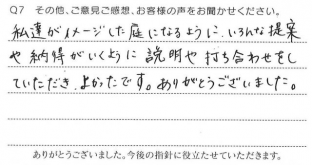 Q7 その他、ご意見ご感想、お客様の声をお聞かせください。
私達がイメージした庭になるように、いろんな提案
や納得がいくように説明や打ち合わせをし
ていただき、よかったです。ありがとうございました。
ありがとうございました。今後の指針に役立たせていただきます。